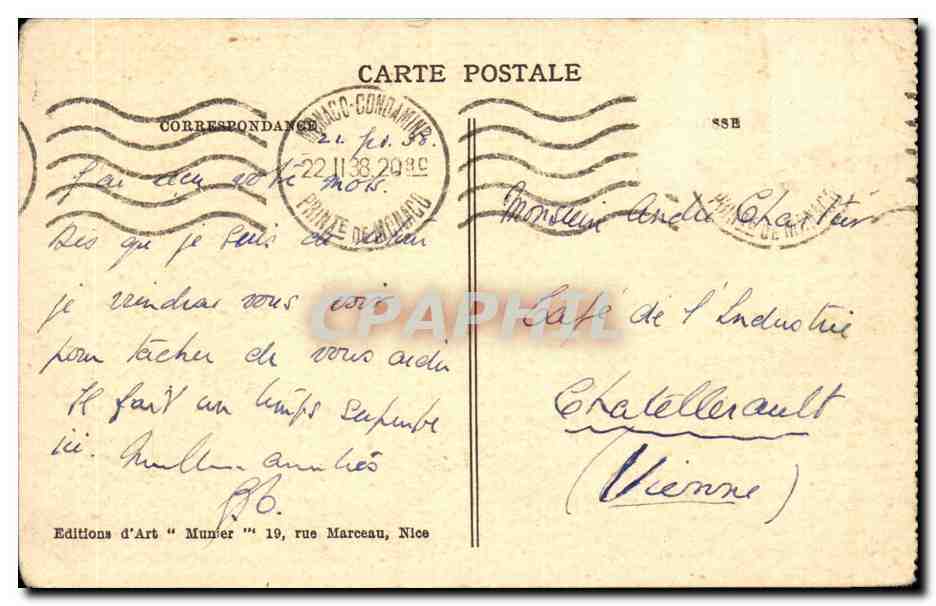 CARTE POSTALE
CORRESPONDANCE
SSE
MONACO-CONDAMINE
22 II 38 20
PRINTE DE MONACO
21. 38.
J'ai mots.
Dès que je suis de retour
je viendrai vous voir
pour tâcher de vous aider
Il fait un temps superbe
ici. Meilleures amitiés
Monsieur André
Café de l'Industrie
Chatellerault
(Vienne)
DE MONACO
CPAPHIL
Editions d'Art " Munier " 19, rue Marceau, Nice